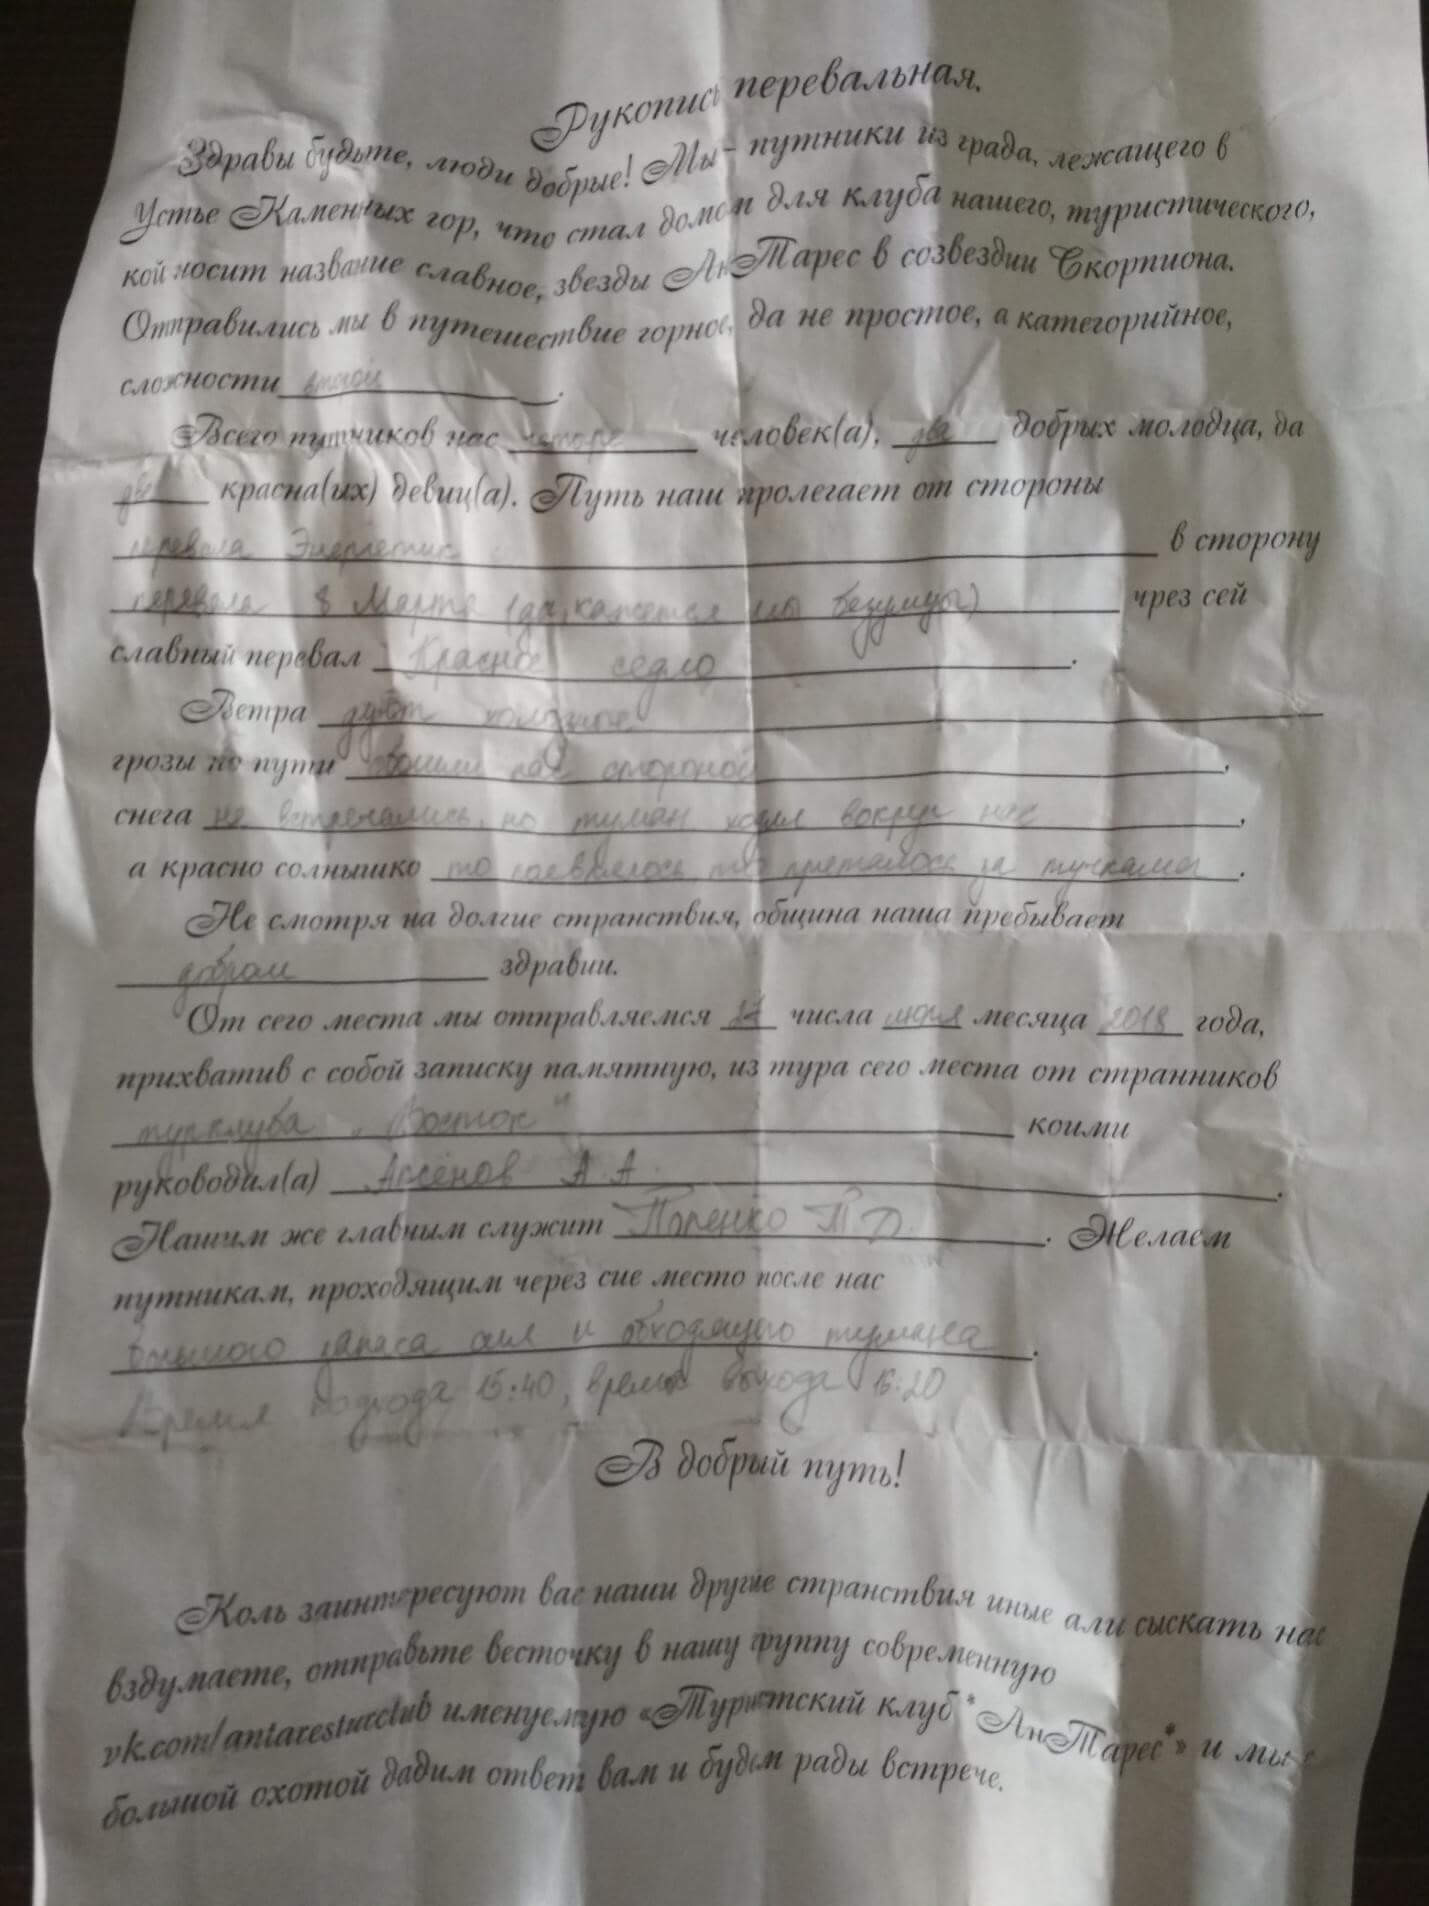 Рукопись перевальная.
Здравы будьте, люди добрые! Мы - путники из града, лежащего в
Устье Каменных гор, что стал домом для клуба нашего, туристического,
кой носит название славное, звезды АнТарес в созвездии Скорпиона.
Отправились мы в путешествие горное, да не простое, а категорийное,
сложности второй.
Всего путников нас четыре человек(а), два добрых молодца, да
две красна(ых) девиц(а). Путь наш пролегает от стороны
перевала Энергетик в сторону
перевала 8 Марта (да, кажется мы безумцы) чрез сей
славный перевал Красное седло.
Ветра дуют холодные
грозы по пути обошли нас стороной,
снега не встречались, но туман ходил вокруг нас,
а красно солнышко то появлялось, то пряталось за тучками.
Не смотря на долгие странствия, община наша пребывает
добром здравии.
От сего места мы отправляемся числа июля месяца 2018 года,
прихватив с собой записку памятную, из тура сего места от странников
турклуба "Восток" коими
руководил(а) Аксёнов А.А.
Нашим же главным служит. Желаем
путникам, проходящим через сие место после нас
большого запаса сил и обходящего тумана.
Время подхода 15:40, время выхода 16:20
В добрый путь!
Коль заинтересуют вас наши другие странствия иные али сыскать нас
вздумаете, отправьте весточку в нашу группу современную
vk.com/antaresturclub именуемую «Туристский клуб *АнТарес*» и мы с
большой охотой дадим ответ вам и будем рады встрече.